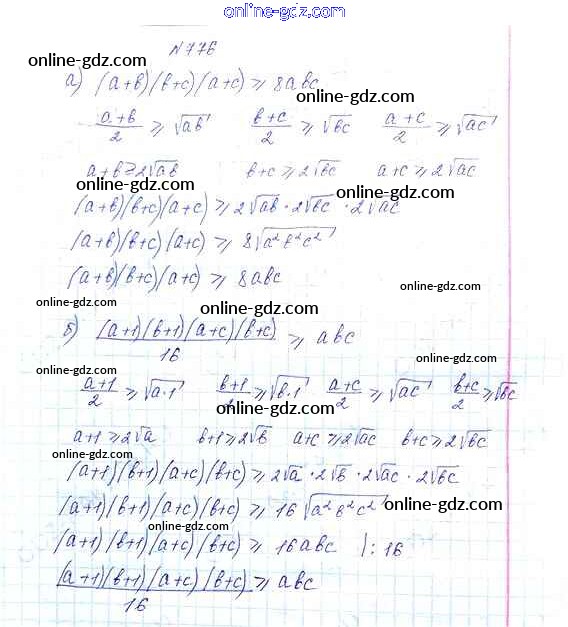 online-gdz.com
N776
online-gdz.com
а) (a+b)(b+c)(a+c) ≥ 8abc
online-gdz.com
(a+b)/2 ≥ √ab (b+c)/2 ≥ √bc (a+c)/2 ≥ √ac
online-gdz.com
a+b≥2√ab b+c ≥ 2√bc a+c ≥ 2√ac
online-gdz.com online-gdz.com
(a+b)(b+c)(a+c) ≥ 2√ab · 2√bc · 2√ac
online-gdz.com
(a+b)(b+c)(a+c) ≥ 8√a²b²c²
(a+b)(b+c)(a+c) ≥ 8abc
online-gdz.com
online-gdz.com online-gdz.com
б) (a+1)(b+1)(a+c)(b+c)/16 ≥ abc
online-gdz.com
online-gdz.com
(a+1)/2 ≥ √a·1 (b+1)/2 ≥ √b·1 (a+c)/2 ≥ √ac (b+c)/2 ≥ √bc
online-gdz.com
a+1 ≥ 2√a b+1 ≥ 2√b a+c ≥ 2√ac b+c ≥ 2√bc
online-gdz.com
(a+1)(b+1)(a+c)(b+c) ≥ 2√a · 2√b · 2√ac · 2√bc
online-gdz.com
(a+1)(b+1)(a+c)(b+c) ≥ 16√a²b²c²
online-gdz.com
online-gdz.com
(a+1)(b+1)(a+c)(b+c) ≥ 16abc |:16
online-gdz.com
(a+1)(b+1)(a+c)(b+c)/16 ≥ abc
online-gdz.com